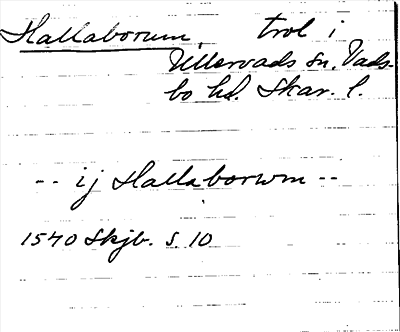 Hallaborum, trol i
Ullervads sn, Vads-
bo hd. Skar. l.
-- ij Hallaborwm --
1540 Skjb. S. 10